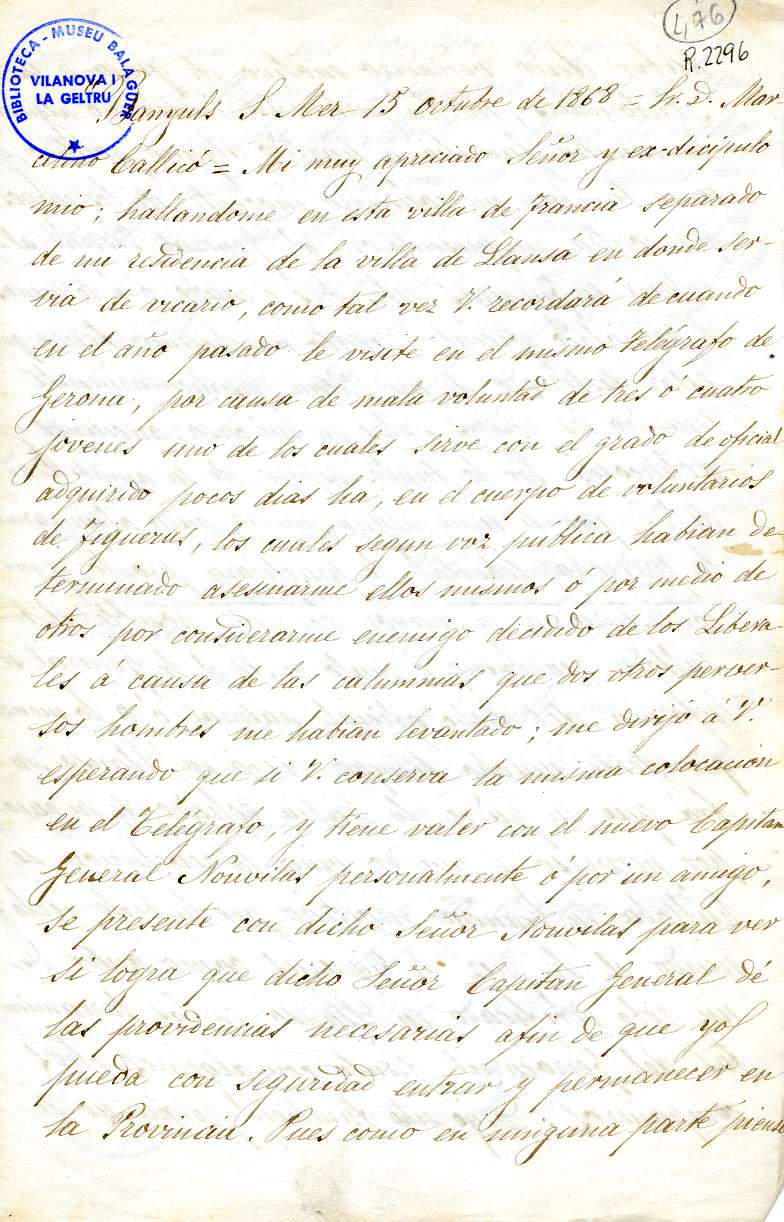 476
R.2296
BIBLIOTECA - MUSEU BALAGUER
VILANOVA I
LA GELTRÚ
Banyuls S. Mer 15 octubre de 1868 = Sr. D. Mar-
celino Callicó = Mi muy apreciado Señor y ex-dicipulo
mio; hallandome en esta villa de Francia separado
de mi residencia de la villa de Llansá en donde ser-
via de vicario, como tal vez V. recordará de cuando
en el año pasado le visité en el mismo Telégrafo de
Gerona, por causa de mala voluntad de tres ó cuatro
jovenes uno de los cuales sirve con el grado de oficial
adquirido pocos dias há, en el cuerpo de voluntarios
de Figueras, los cuales segun voz pública habian de-
terminado asesinarme ellos mismos ó por medio de
otros por considerarme enemigo decidido de los Libera-
les á causa de las calumnias que dos otros perver-
sos hombres me habian levantado; me dirijó á V.
esperando que si V. conserva la misma colocacion
en el Telégrafo, y tiene valer con el nuevo Capitan
General Nouvilas personalmente ó por un amigo,
se presente con dicho Señor Nouvilas para ver
si logra que dicho Señor Capitan General dé
las providencias necesarias afin de que yo
pueda con seguridad entrar y permanecer en
la Provincia. Pues como en ninguna parte piense